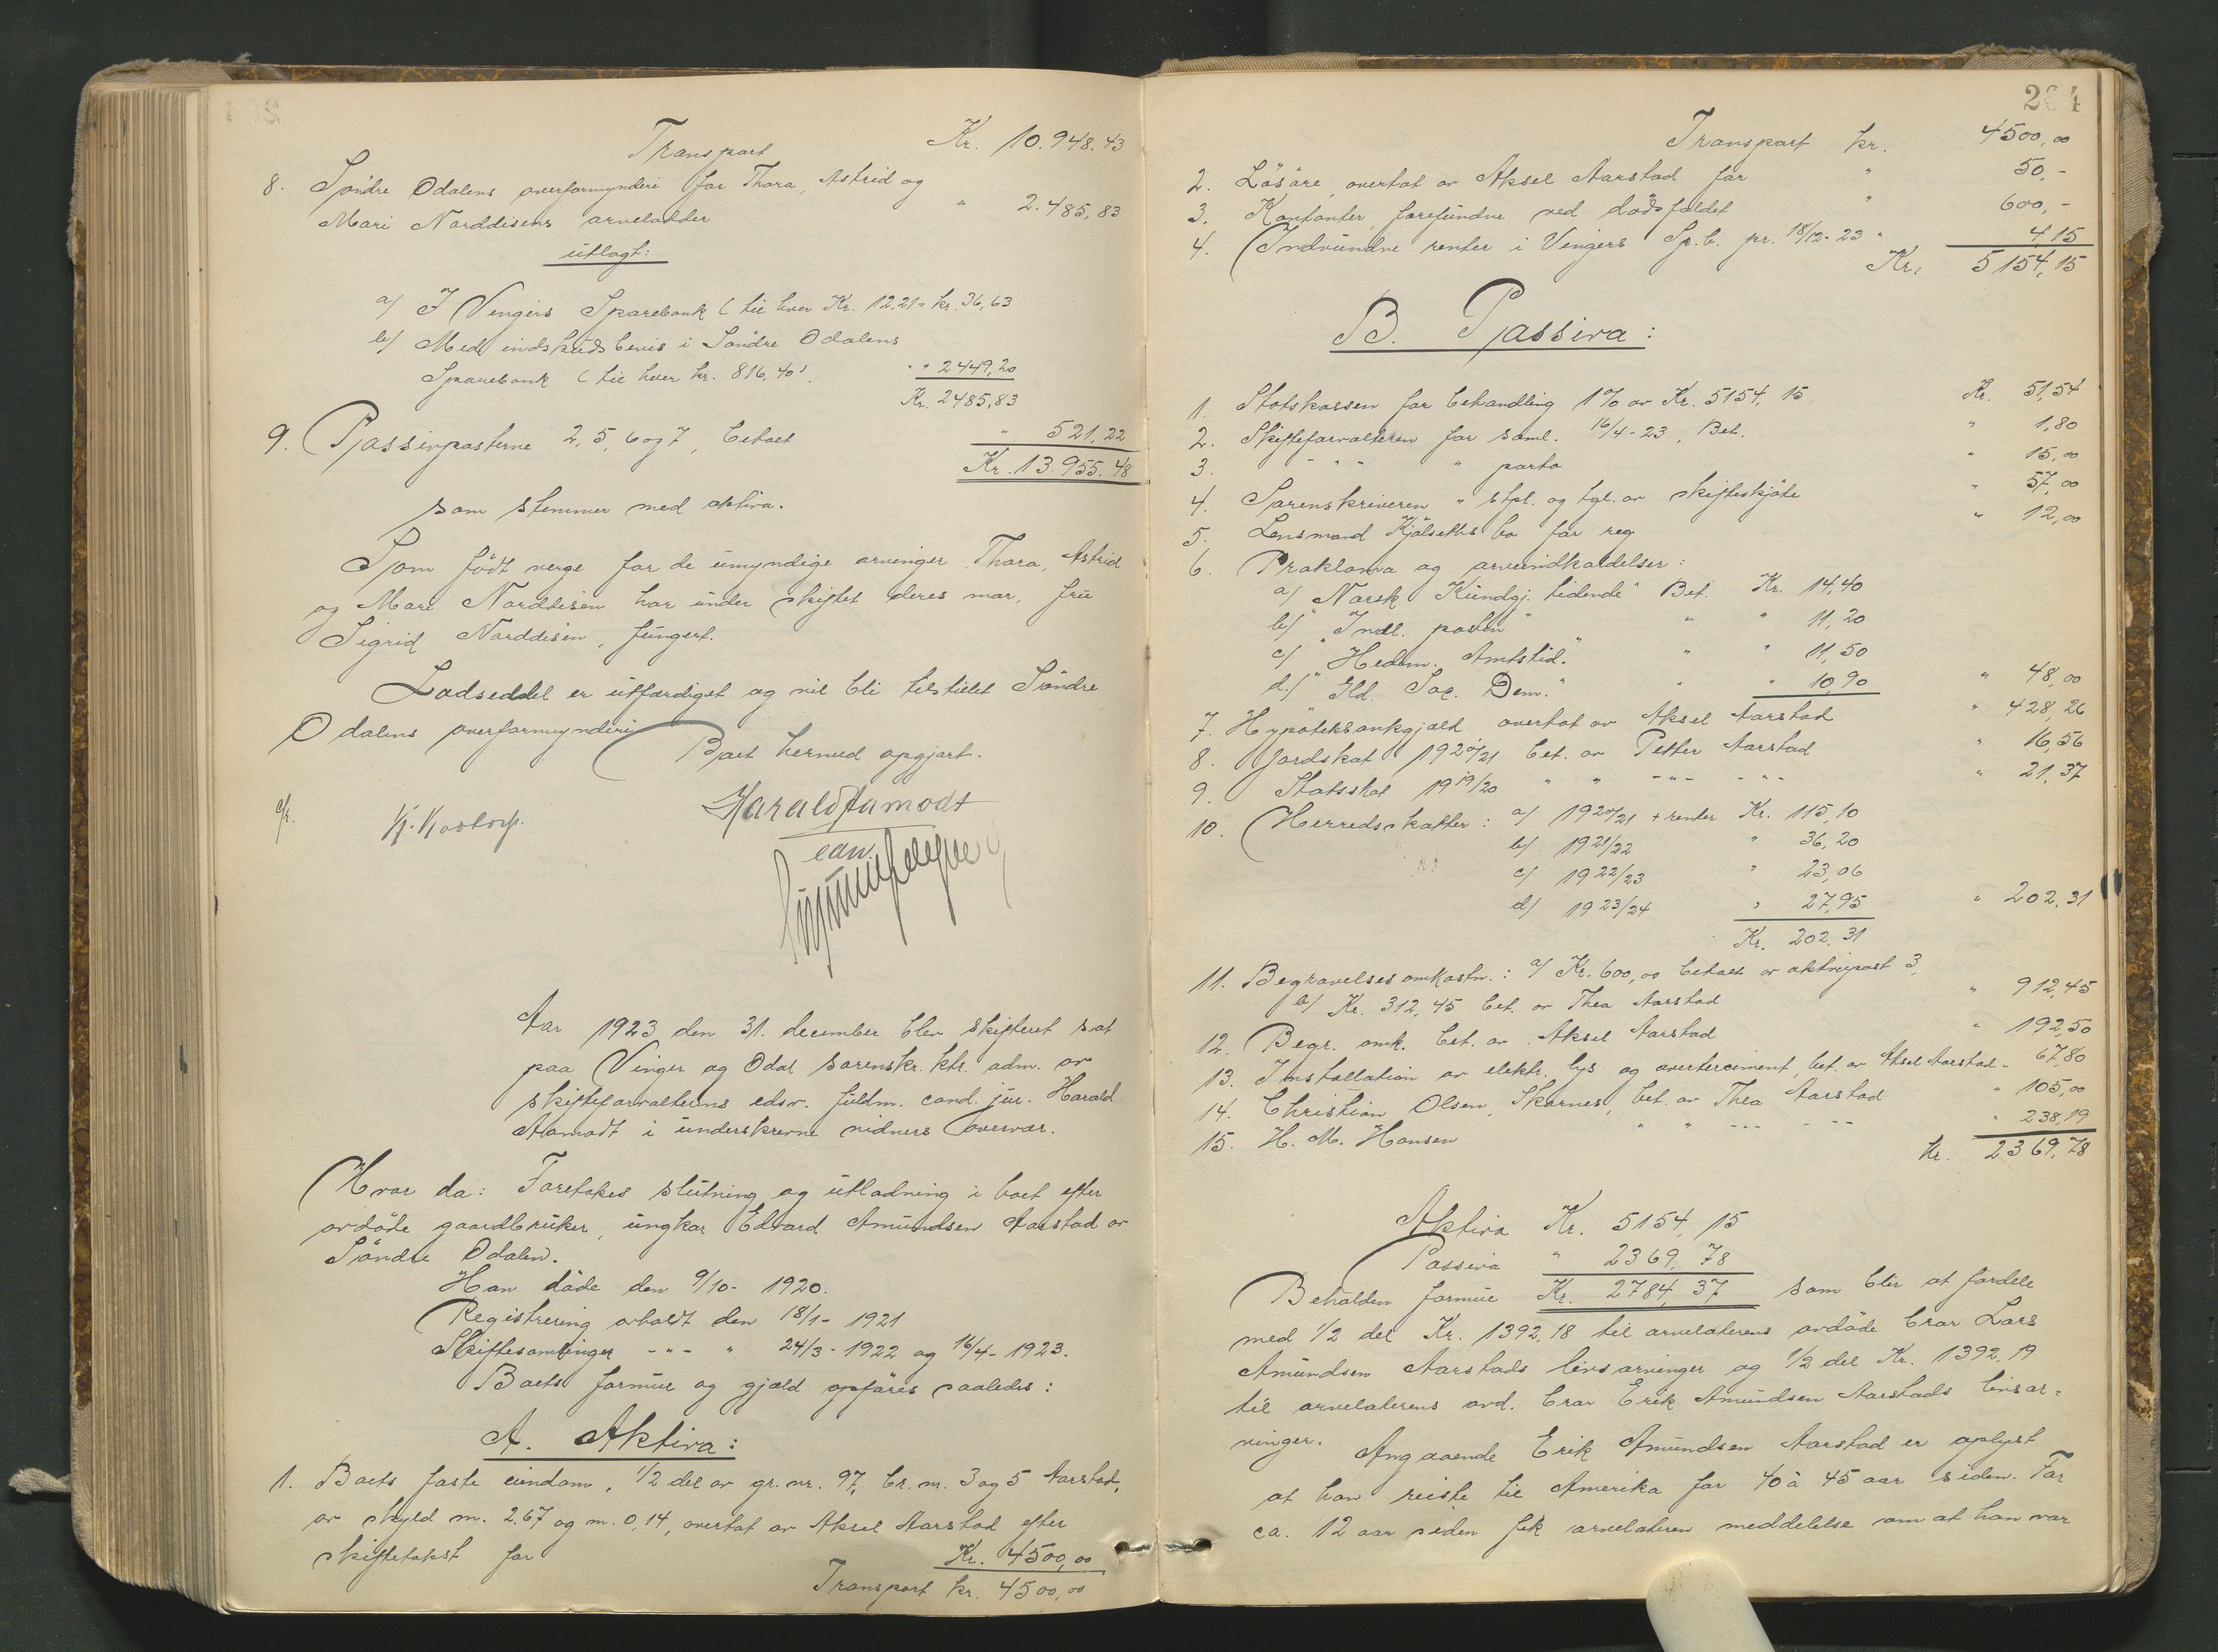 Transport Kr. 10.948.43
8. Söndre Odalens overformynderi for Thora, Astrid og
Mari Norddisens arvelodder " 2.485,83
utlagt:
a/ I Vingers Sparebank (til hver Kr. 12.21 = kr. 36,63
b/ Med indskudsbevis i Söndre Odalens
Sparebank (til hver kr. 816,40). " " 2449,20
Kr. 2485,83
9. Passivposterne 2, 5, 6 og 7, betalt " 521,22
Kr. 13.955.48
som stemmer med aktiva.
Som född verge for de umyndige arvinger Thora, Astrid
og Mari Norddisen har under skiftet deres mor, fru
Sigrid Norddisen, fungert.
Lodseddel er utfærdiget og vil bli tilstillet Söndre
Odalens overformynderi
Boet hermed opgjort.
Harald Aamodt
edsv.
Aar 1923 den 31. december blev skifteret sat
paa Vinger og Odal sorenskr. ktr. adm. av
skifteforvalterens edsv. fuldm. cand. jur. Harald
Aamodt i underskrevne vidners overvær.
Hvor da: Foretokes slutning og utlodning i boet efter
avdöde gaardbruker, ungkar Edvard Amundsen Aarstad av
Söndre Odalen.
Han döde den 9/10- 1920.
Registrering avholdt den 18/1- 1921
Skiftesamlinger -"- " 24/3- 1922 og 16/4- 1923.
Boets formue og gjæld opföres saaledes:
A. Aktiva:
1. Boets faste eiendom, 1/2 del av gr. nr. 97, br. nr. 3 og 5 Aarstad,
av skyld m. 2.67 og m. 0,14, overtat av Aksel Aarstad efter
skiftetakst for Kr. 4500,00
Transport kr. 4500,00
264
Transport kr. 4500,00
2. Lösöre, overtat av Aksel Aarstad for " 50,-
3. Kontanter, forefundne ved dödsfaldet " 600,-
4. Indvundne renter i Vingers Sp.b. pr. 18/12-23 " 4.15
Kr. 5154,15
B. Passiva:
1. Statskassen for behandling 1% av Kr. 5154,15 Kr. 51,54
2. Skifteforvalteren for saml. 16/4-23, Bet. " 1,80
3. - " - " porto " 15,00
4. Sorenskriveren " stpl. og tgl. av skifteskjöte " 57,00
5. Lensmand Kjölseths bo for reg " 12,00
6. Proklama og arveindkaldelser:
a/ "Norsk Kundgj. tidende" Bet. Kr. 14,40
b/ "Indl. posten" " " 11,20
c/ "Hedm. Amtstid." " " 11,50
d/ "Gld. Soc. Dem." " " 10,90 " 48,00
7. Hypotekbankgjæld overtat av Aksel Aarstad " 428,26
8. Jordskat 1920/21 bet. av Petter Aarstad " 16,56
9. Statsskat 1919/20 " " -"- -"- " 21,37
10. Herredsskatter: a/ 1920/21 + renter Kr. 115,10
b/ 1921/22 " 36,20
c/ 1922/23 " 23,06
d/ 1923/24 " 27,95 " 202,31
Kr. 202,31
11. Begravelsesomkostn.: a/ Kr. 600,00 betalt av aktivpost 3,
b/ Kr. 312,45 bet. av Thea Aarstad " 912,45
12. Begr. omk. bet. av Aksel Aarstad " 192,50
13. Installation av elektr. lys og avertissement, bet. av Aksel Aarstad " 67,80
14. Christian Olsen, Skarnes, bet. av Thea Aarstad " 105,00
15. H. M. Hansen " " -"- -"- " 238,19
Kr. 2369,78
Aktiva Kr. 5154,15
Passiva " 2369,78
Beholden formue Kr. 2784,37 som blir at fordele
med 1/2 del Kr. 1392,18 til arvelaterens avdöde bror Lars
Amundsen Aarstads livsarvinger og 1/2 del Kr. 1392,19
til arvelaterens avd. bror Erik Amundsen Aarstads livsar=
vinger.
Angaaende Erik Amundsen Aarstad er oplyst
at han reiste til Amerika for 40 à 45 aar siden. For
ca. 12 aar siden fik arvelateren meddelelse om at han var